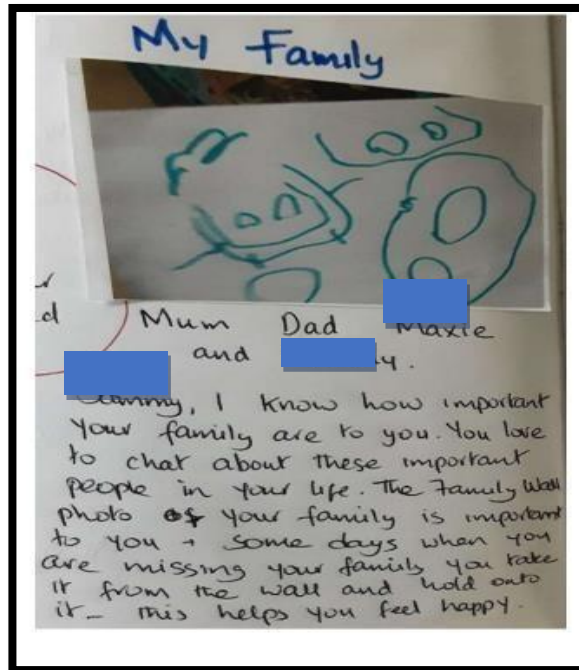 My Family
r
d
Mum Dad Maxie
and y.
, I know how important
your family are to you. You love
to chat about these important
people in your life. The Family Wall
photo of your family is important
to you + some days when you
are missing your family you take
it from the wall and hold onto
it - this helps you feel happy.